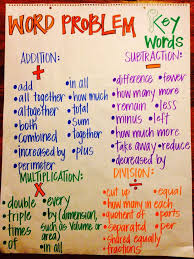 WORD PROBLEM
Key Words
ADDITION:
+
•add
•all together
•altogether
•both
•combined
•increased by
•perimeter
•in all
•how much
•total
•sum
•together
•plus
SUBTRACTION:
-
•difference
•fewer
•how many more
•remain
•less
•minus
•left
•how much more
•take away
•reduce
•decreased by
MULTIPLICATION:
x
•double
•every
•triple
•times
•of
•by (dimension,
such as volume or
area)
•in all
DIVISION:
÷
•cut up
•equal
•how many in each
•quotient of
•parts
•separated
•per
•shared equally
•fractions